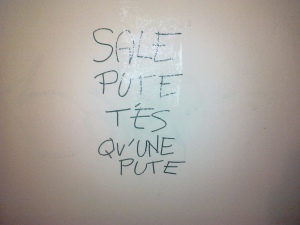 SALE
PUTE
T'ES
QU'UNE
PUTE